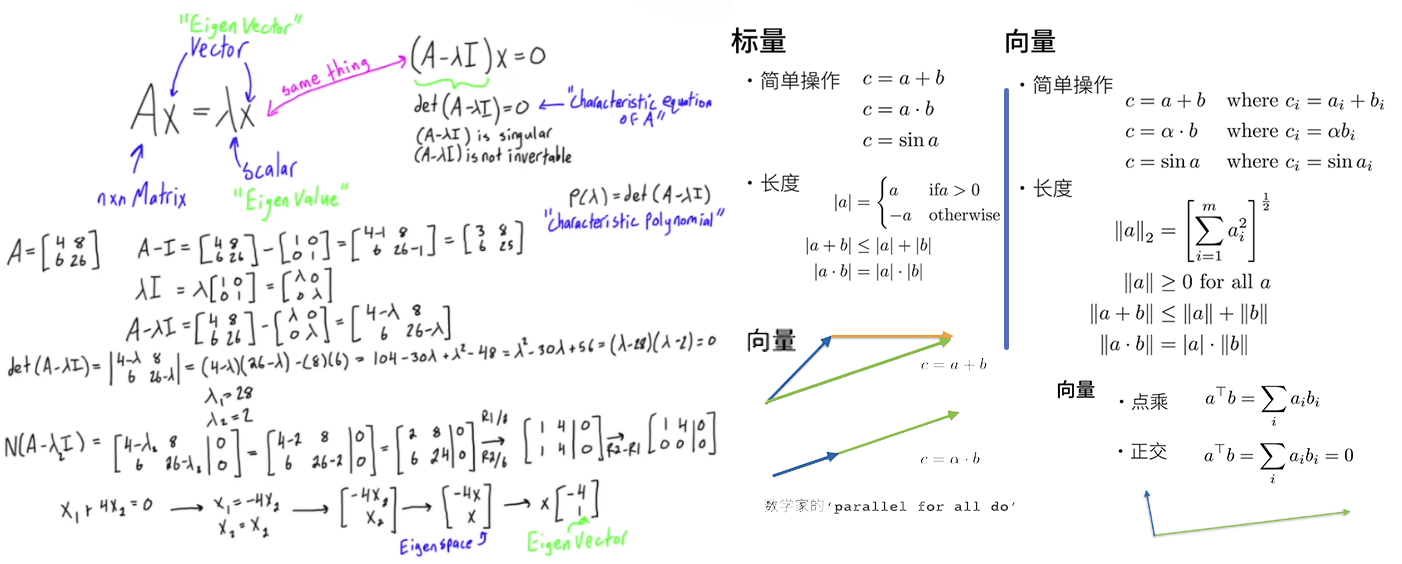 "Eigen Vector"
Vector
Ax = λx
same thing
(A-λI)x=0
det(A-λI)=0 ← "Characteristic equation
OF A"
(A-λI) is singular
(A-λI) is not invertable
nxn Matrix
scalar
"Eigen Value"
P(λ)=det(A-λI)
"Characteristic Polynomial"
A=[4 8; 6 26] A-I=[4 8; 6 26]-[1 0; 0 1]=[4-1 8; 6 26-1]=[3 8; 6 25]
λI = λ[1 0; 0 1]=[λ 0; 0 λ]
A-λI=[4 8; 6 26]-[λ 0; 0 λ]=[4-λ 8; 6 26-λ]
det(A-λI)=|4-λ 8; 6 26-λ|=(4-λ)(26-λ)-(8)(6)=104-30λ+λ²-48=λ²-30λ+56=(λ-28)(λ-2)=0
λ₁=28
λ₂=2
N(A-λ₂I)=[4-λ₂ 8|0; 6 26-λ₂|0]=[4-2 8|0; 6 26-2|0]=[2 8|0; 6 24|0] R1/2 → R2/6 [1 4|0; 1 4|0] → R2-R1 [1 4|0; 0 0|0]
x₁+4x₂=0 → x₁=-4x₂ x₂=x₂ → [-4x₂; x₂] → [-4x; x] → x[-4; 1]
Eigenspace
Eigen Vector
标量
・简单操作 c = a + b
c = a · b
c = sin a
・长度
|a| = { a if a > 0
−a otherwise
|a + b| ≤ |a| + |b|
|a · b| = |a| · |b|
向量
c = a + b
c = α · b
数学家的‘parallel for all do’
向量
・简单操作
c = a + b where cᵢ = aᵢ + bᵢ
c = α · b where cᵢ = αbᵢ
c = sin a where cᵢ = sin aᵢ
・长度
‖a‖₂ = [∑ᵢ₌₁ᵐ aᵢ²]^½
‖a‖ ≥ 0 for all a
‖a + b‖ ≤ ‖a‖ + ‖b‖
‖a · b‖ = |a| · ‖b‖
向量
・点乘 a⊤b = ∑ᵢ aᵢbᵢ
・正交 a⊤b = ∑ᵢ aᵢbᵢ = 0